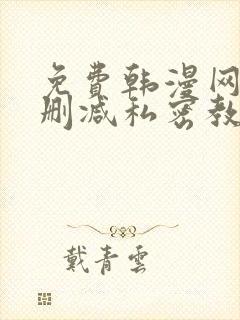 免費韩漫网
删减私密教
戴青雲